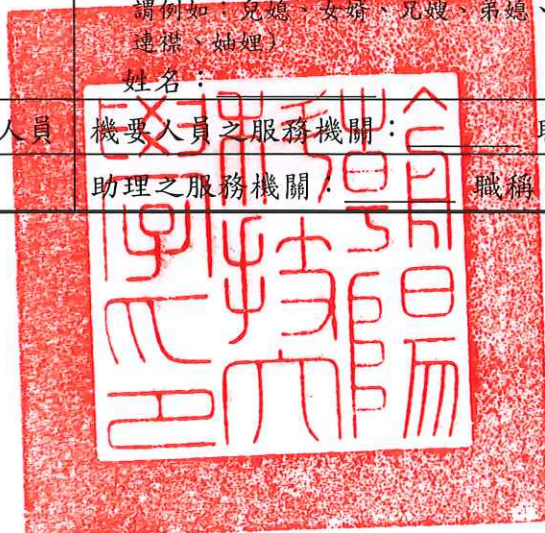 謂例如：兒媳、女婿、兄嫂、弟媳、
連襟、妯娌）
姓名：
人員 機要人員之服務機關：
助理之服務機關： 職稱
朝陽
科技大
學印